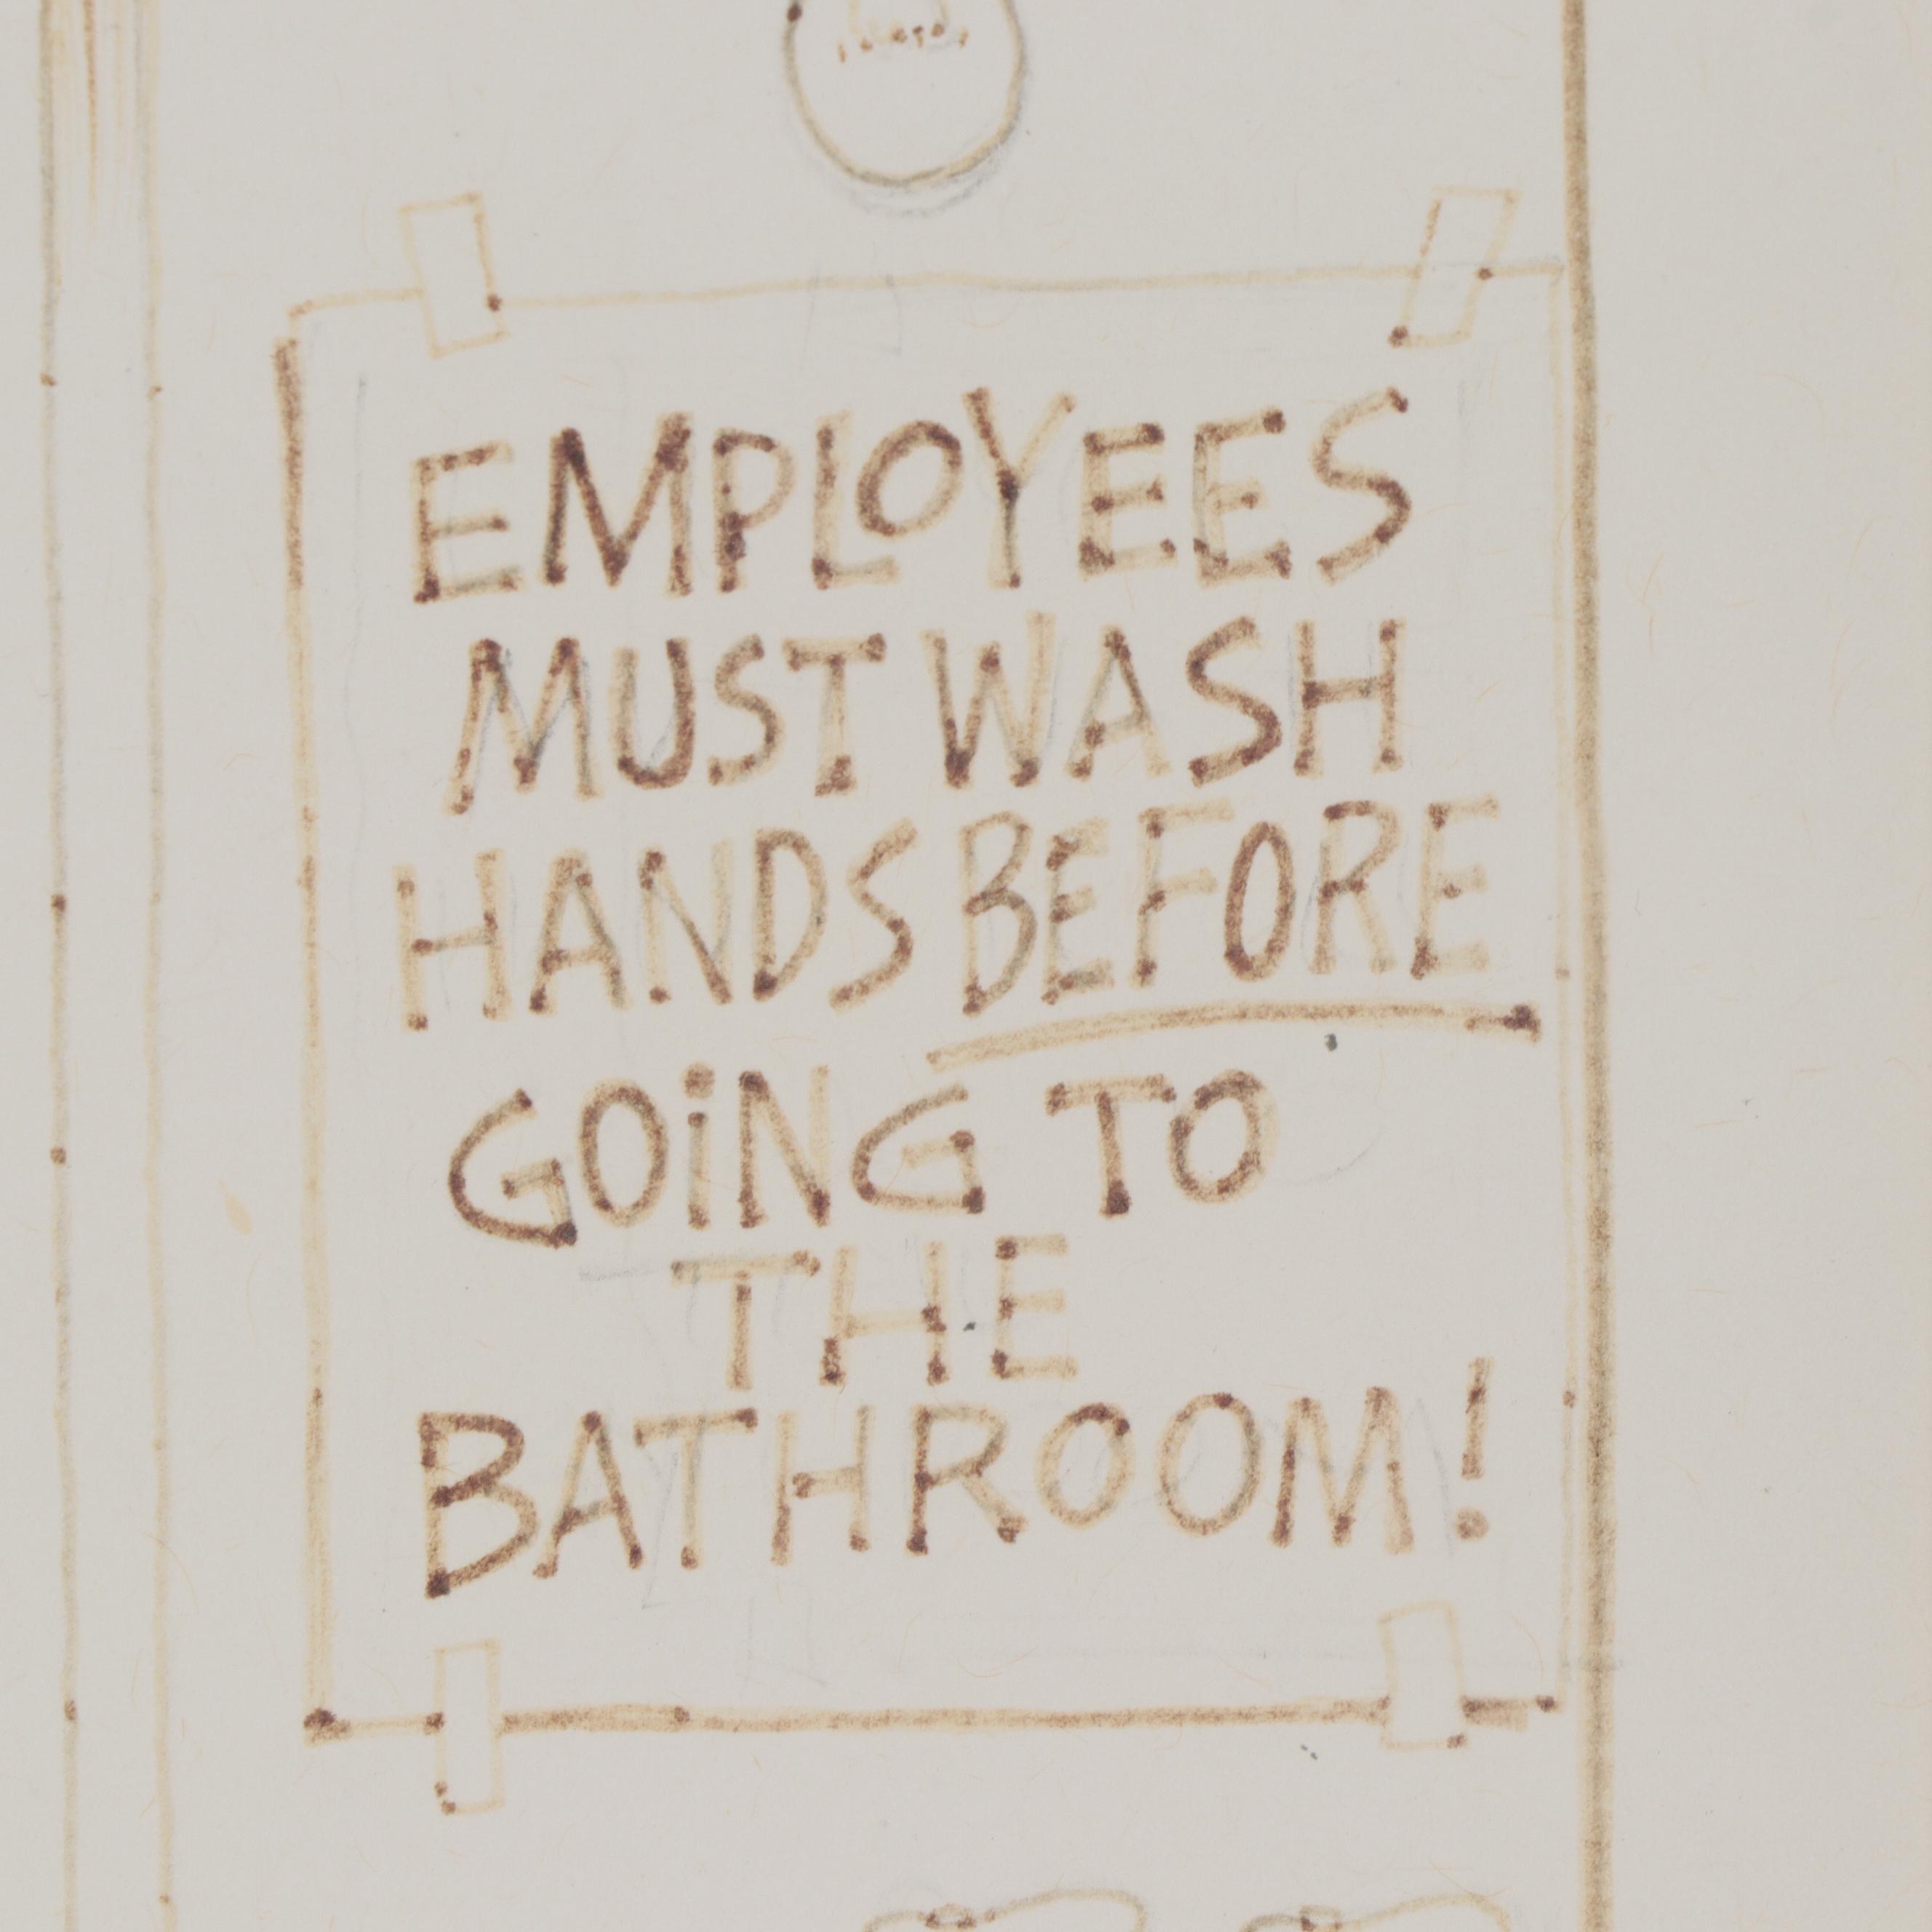 EMPLOYEES
MUST WASH
HANDS BEFORE
GOiNG TO
THE
BATHROOM!